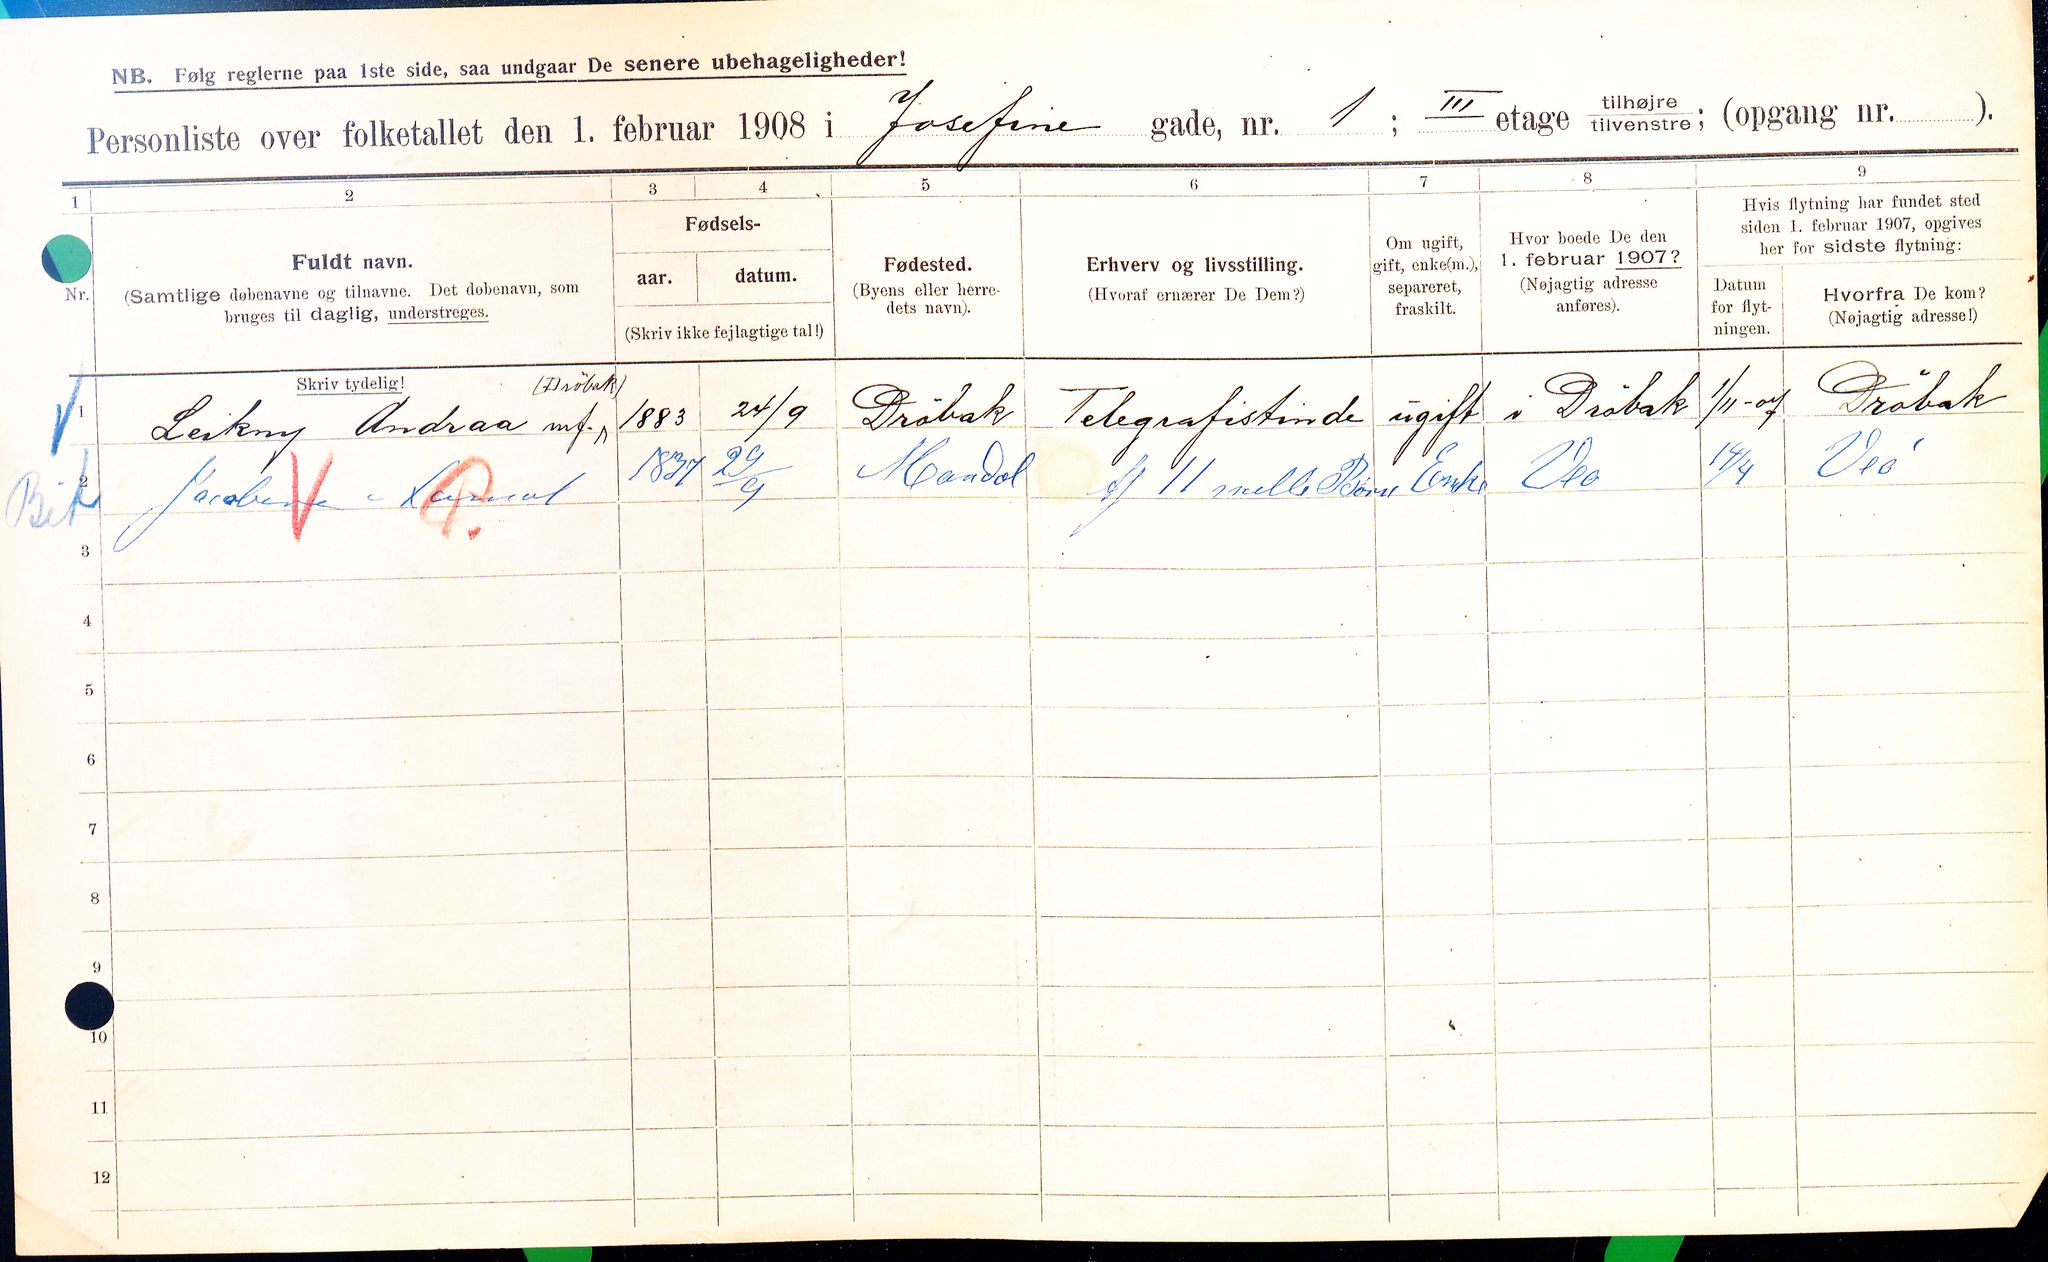 NB. Følg reglerne paa 1ste side, saa undgaar De senere ubehageligheder!
Personliste over folketallet den 1. februar 1908 i Josefine gade, nr. 1; III etage tilhøjre/tilvenstre; (opgang nr. ).
1 2 3 4 5 6 7 8 9
Nr.
Fuldt navn.
(Samtlige døbenavne og tilnavne. Det døbenavn, som
bruges til daglig, understreges.
Skriv tydelig!
Fødsels-
aar. datum.
(Skriv ikke fejlagtige tal!)
Fødested.
(Byens eller herre-
dets navn).
Erhverv og livsstilling.
(Hvoraf ernærer De Dem?)
Om ugift,
gift, enke(m.),
separeret,
fraskilt.
Hvor boede De den
1. februar 1907?
(Nøjagtig adresse
anføres).
Hvis flytning har fundet sted
siden 1. februar 1907, opgives
her for sidste flytning:
Datum
for flyt-
ningen.
Hvorfra De kom?
(Nøjagtig adresse!)
(Dröbak)
1 Leikny Andraa 1883 24/9 Dröbak Telegrafistinde ugift i Dröbak 1/11-07 Dröbak
Bit 2 1837 29/9 Mandal Af 11 Børn Enke Veø 14/4 Veø
3
4
5
6
7
8
9
10
11
12